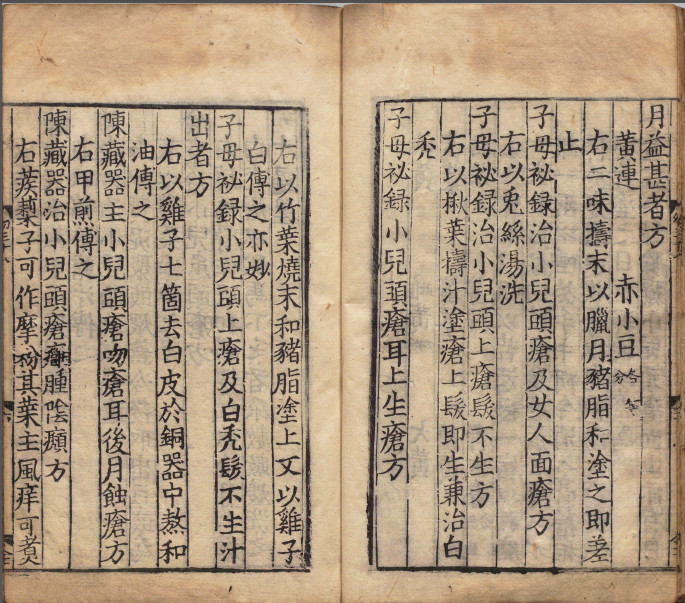 月益甚者方
黃連 赤小豆各分
右二味擣末以臘月豬脂和塗之即差
止
子母祕録治小兒頭瘡及女人面瘡方
右以兎絲湯洗
子母祕録治小兒頭上瘡髮不生方
右以楸葉擣汁塗瘡上髮即生兼治白
禿
子母祕録小兒頭瘡耳上生瘡方
右以竹葉燒末和豬脂塗上又以雞子
白傅之亦妙
子母祕録小兒頭上瘡及白禿髮不生汁
出者方
右以雞子七箇去白皮於銅器中熬和
油傅之
陳藏器主小兒頭瘡吻瘡耳後月蝕瘡方
右甲煎傅之
陳藏器治小兒頭瘡癰腫陰㿗方
右蒺䔧子可作摩粉其葉主風痒可煑